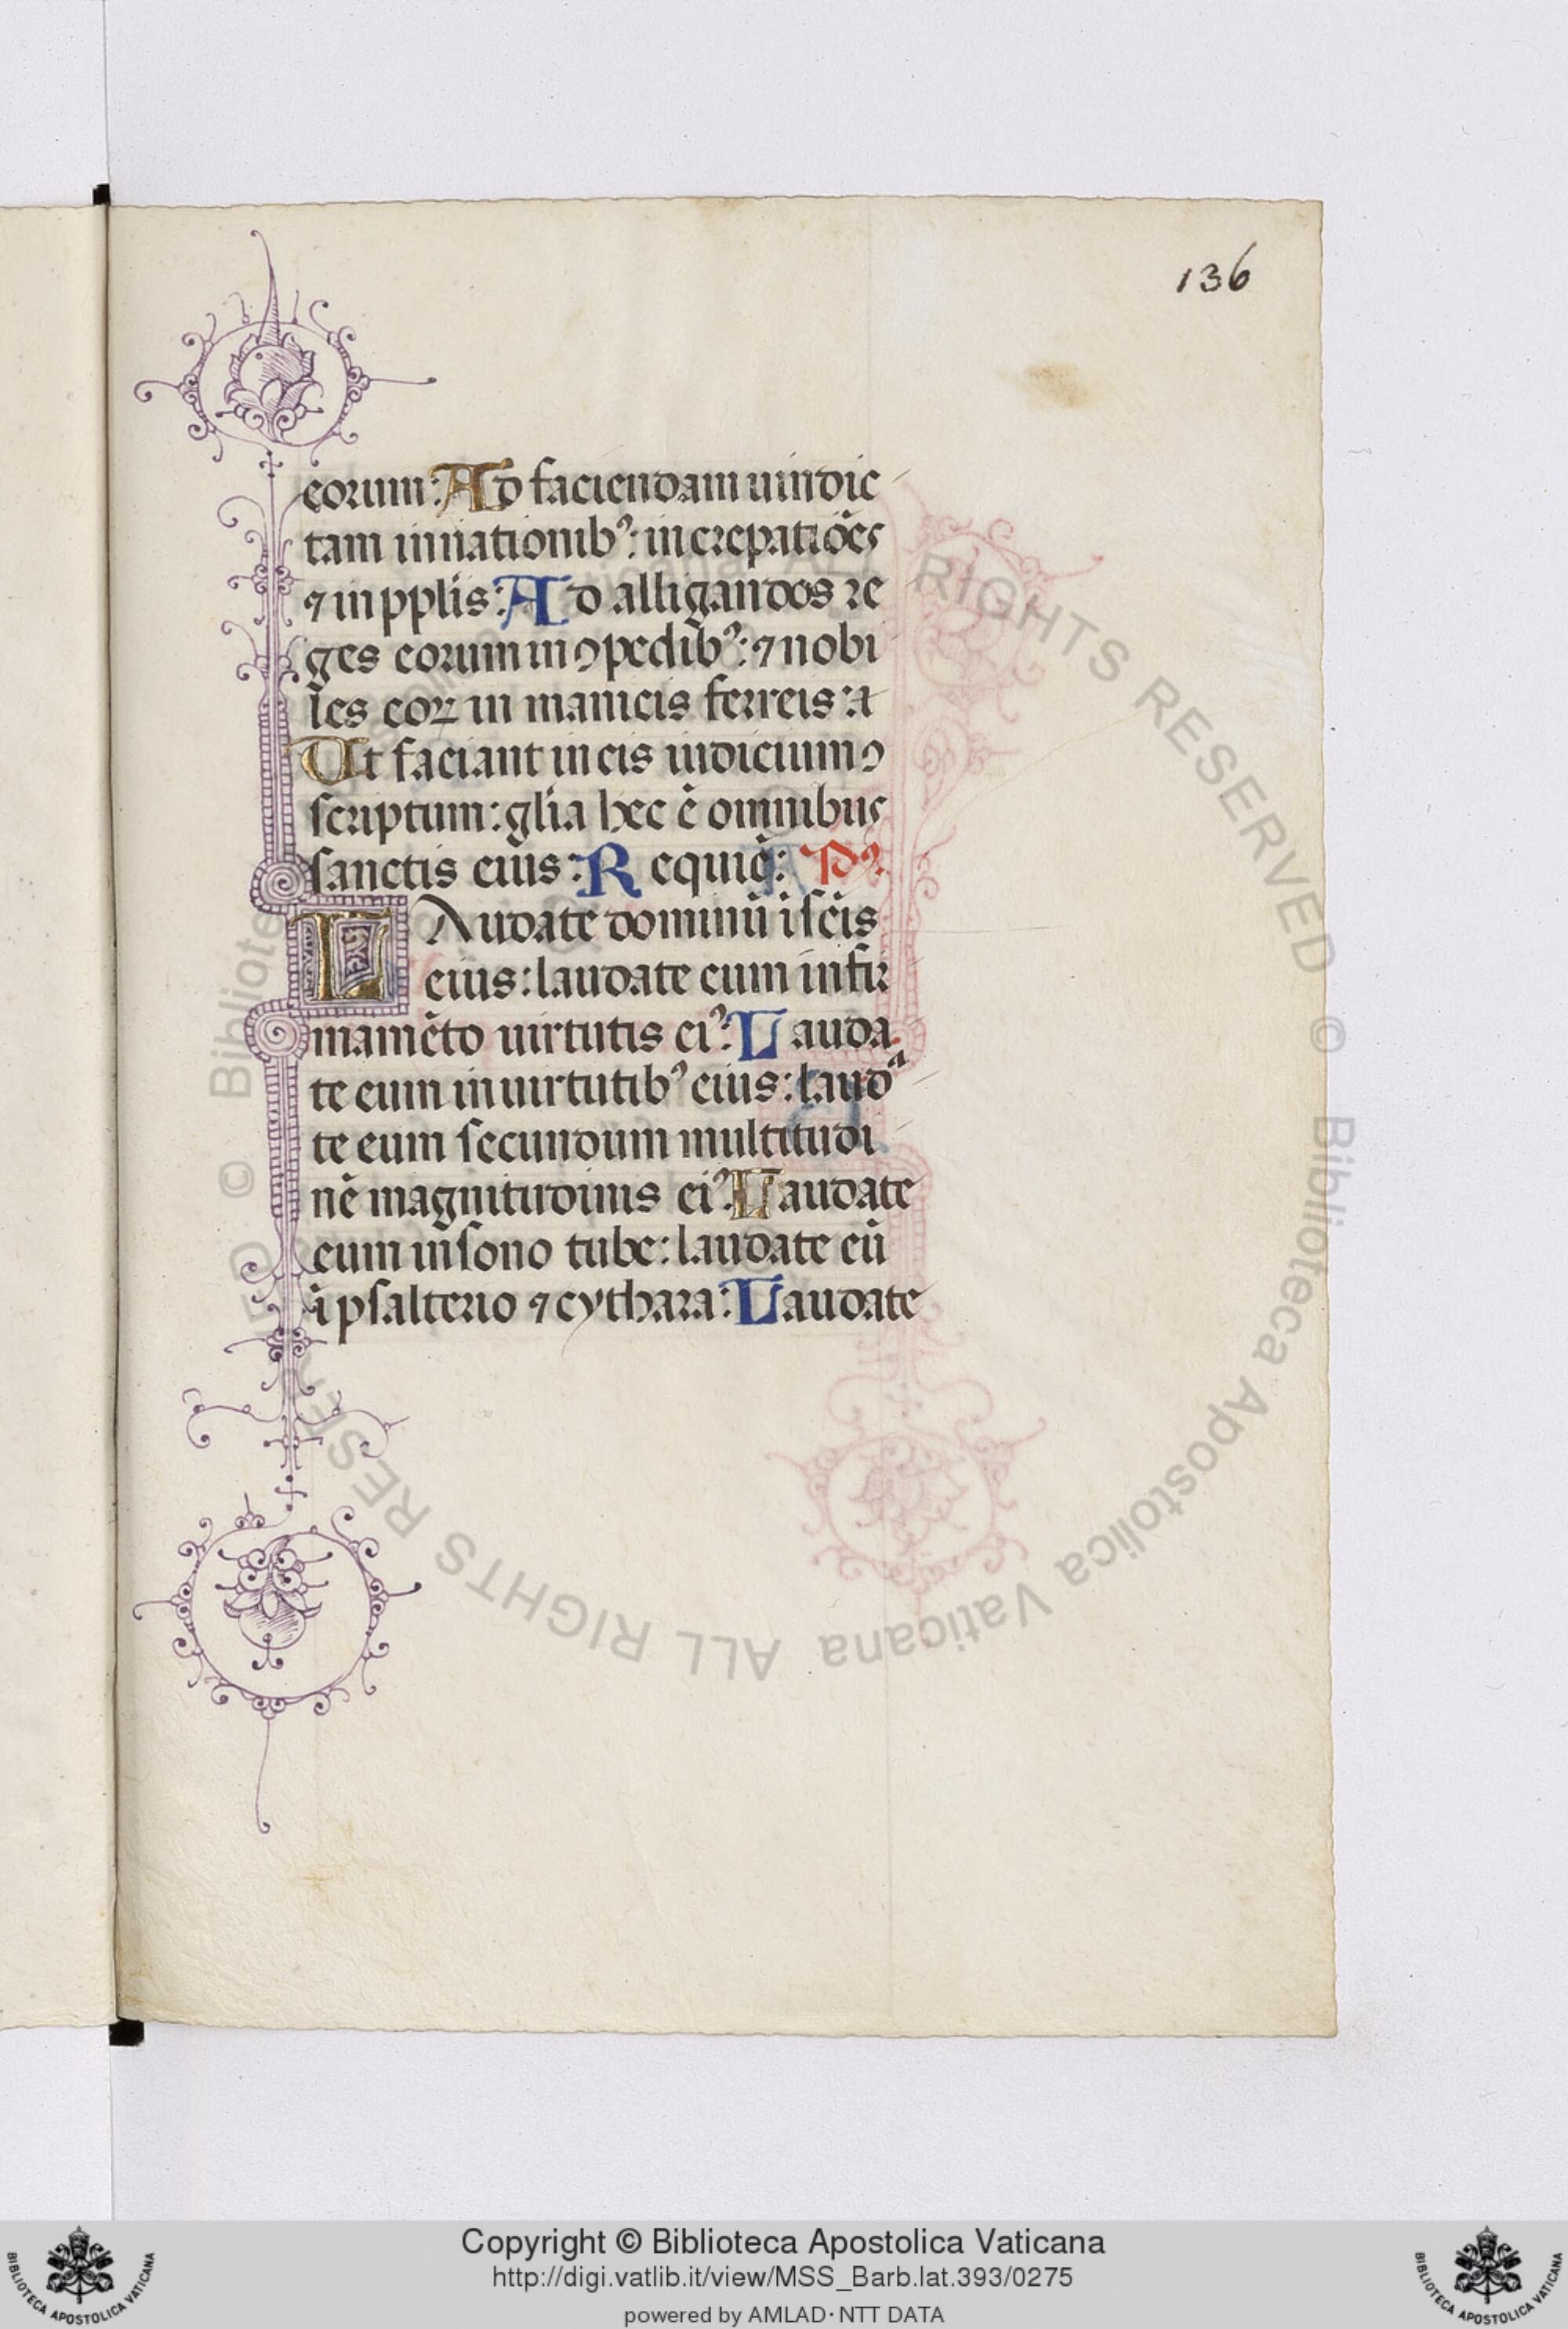 136
eorum: Ad faciendam uindic
tam in nationib᾽: increpatiões
⁊ in ppl̃is: Ad alligandos re
ges eorum in ꝯpedib᾽: ⁊ nobi
les eoꝝ in manicis ferreis:
Ut faciant in eis iudicium ꝯ
scriptum: gl̃ia hec ẽ omnibus
sanctis eius: Requiẽ: Ps᾽.
LAudate dominũ ĩ sc̃is
eius: laudate eum in fir
mamẽto uirtutis ei᾽: Lauda
te eum in uirtutib᾽ eius: laudᵃ
te eum secundum multitudi
nẽ magnitudinis ei᾽: Laudate
eum in sono tube: laudate eũ
ĩ psalterio ⁊ cythara: Laudate
© Biblioteca Apostolica Vaticana ALL RIGHTS RESERVED
Copyright © Biblioteca Apostolica Vaticana
http://digi.vatlib.it/view/MSS_Barb.lat.393/0275
powered by AMLAD·NTT DATA
BIBLIOTECA APOSTOLICA VATICANA
BIBLIOTECA APOSTOLICA VATICANA